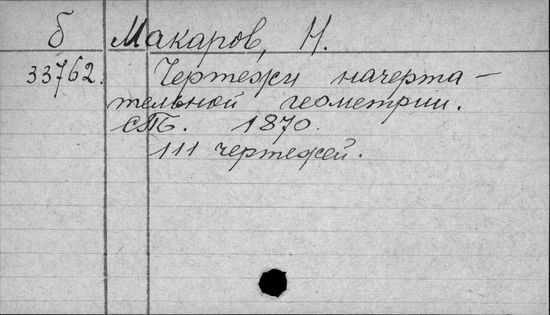 б Макаров, Н.
33762. Чертежи начерта-
тельной геометрии.
СПБ. 1870.
111 чертежей.